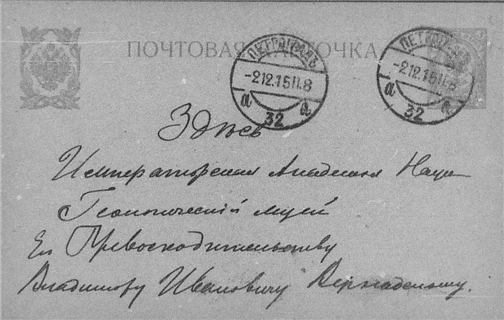 ПОЧТОВАЯ КАРТОЧКА
ПЕТРОГРАДЪ
-2.12.15 11.8
а 32 а
ПЕТРОГРАДЪ
-2.12.15 11.8
а 32 а
Здѣсь
Императорская Академія Наукъ
Геологическій музей
Его Превосходительству
Владиміру Ивановичу Вернадскому.